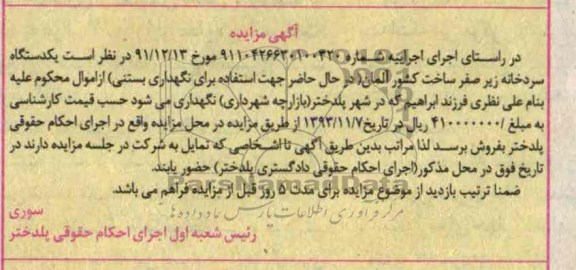 آگهی مزایده
در راستای اجرای اجراییه شماره ۹۱۱۰۴۲۶۶۳۰۱۰۰۳۲۰ مورخ ۹۱/۱۲/۱۳ در نظر است یکدستگاه
سردخانه زیر صفر ساخت کشور آلمان(در حال حاضر جهت استفاده برای نگهداری بستنی) ازاموال محکوم علیه
بنام علی نظری فرزند ابراهیم که در شهر پلدختر(بازارچه شهرداری) نگهداری می شود حسب قیمت کارشناسی
به مبلغ ۴۱۰۰۰۰۰۰۰/ ریال در تاریخ۱۳۹۳/۱۱/۷ از طریق مزایده در محل مزایده واقع در اجرای احکام حقوقی
پلدختر بفروش برسد لذا مراتب بدین طریق آگهی تا اشخاصی که تمایل به شرکت در جلسه مزایده دارند در
تاریخ فوق در محل مذکور(اجرای احکام حقوقی دادگستری پلدختر) حضور یابند.
ضمنا ترتیب بازدید از موضوع مزایده برای مدت ۵ روز قبل از مزایده فراهم می باشد.
مرکز فرآوری اطلاعات پارس ماد داده ها
سوری
رئیس شعبه اول اجرای احکام حقوقی پلدختر